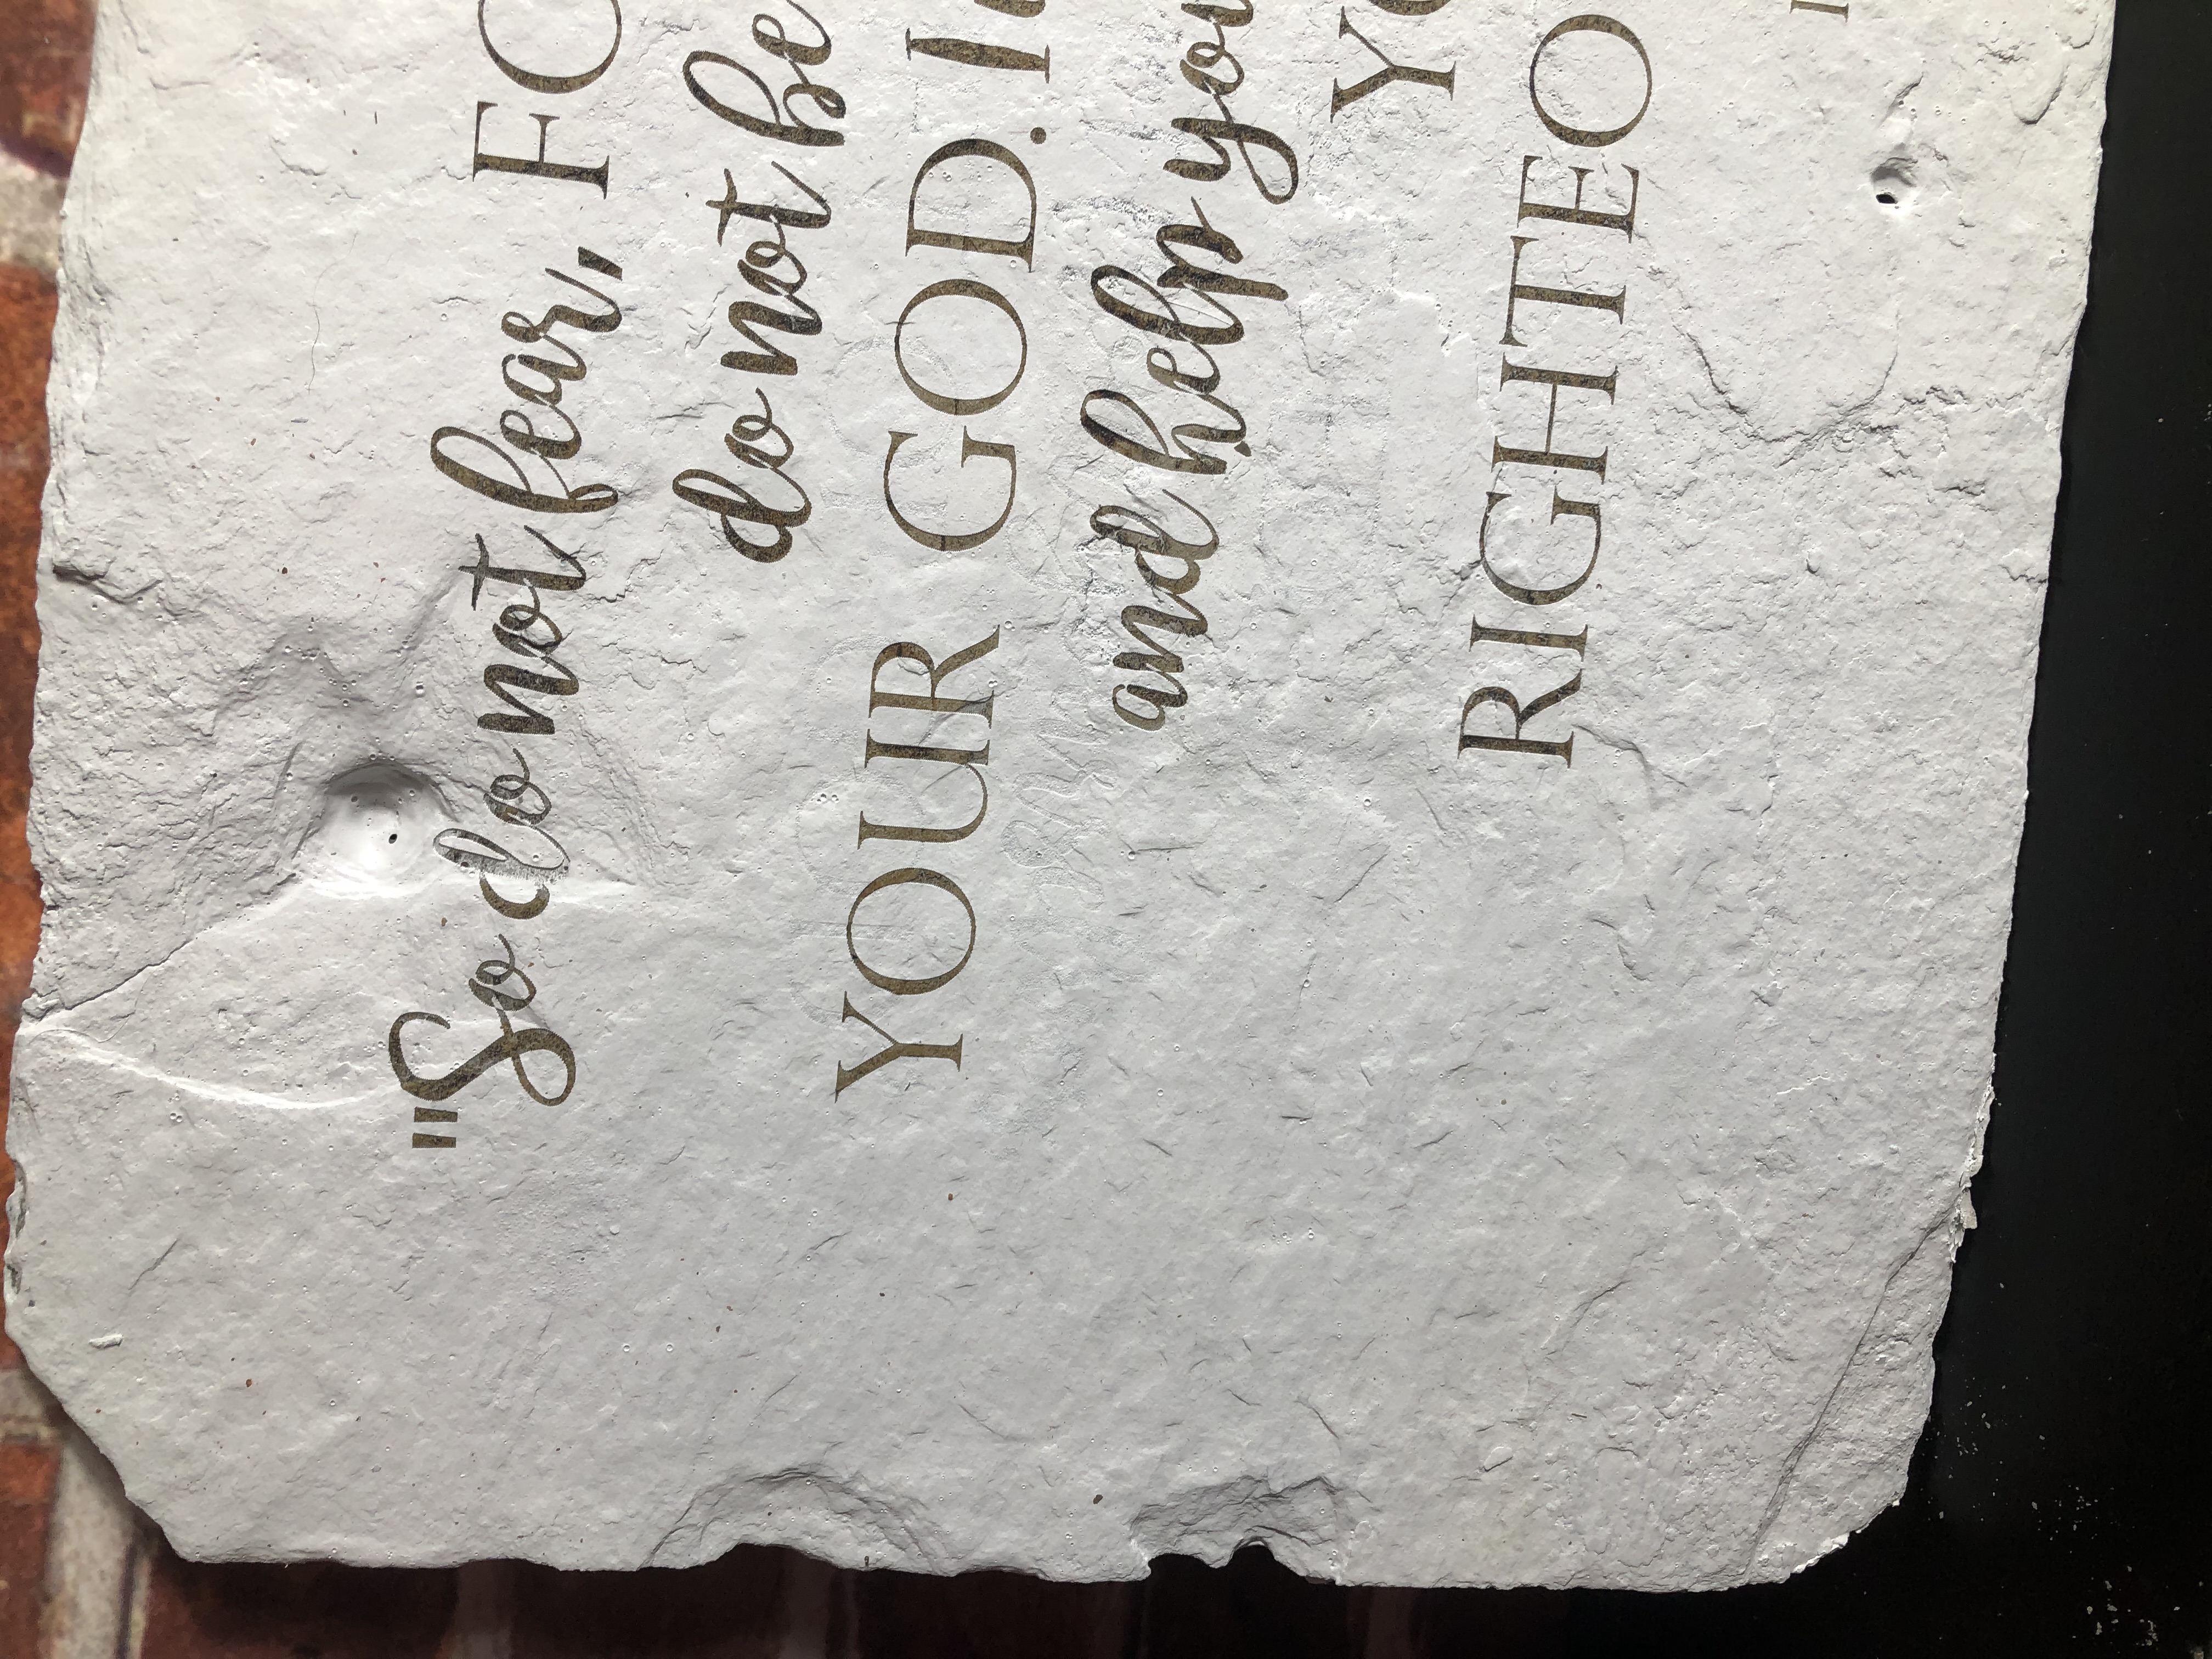 "So do not fear, FO
do not be
YOUR GOD. I
and help you
YO
RIGHTEO